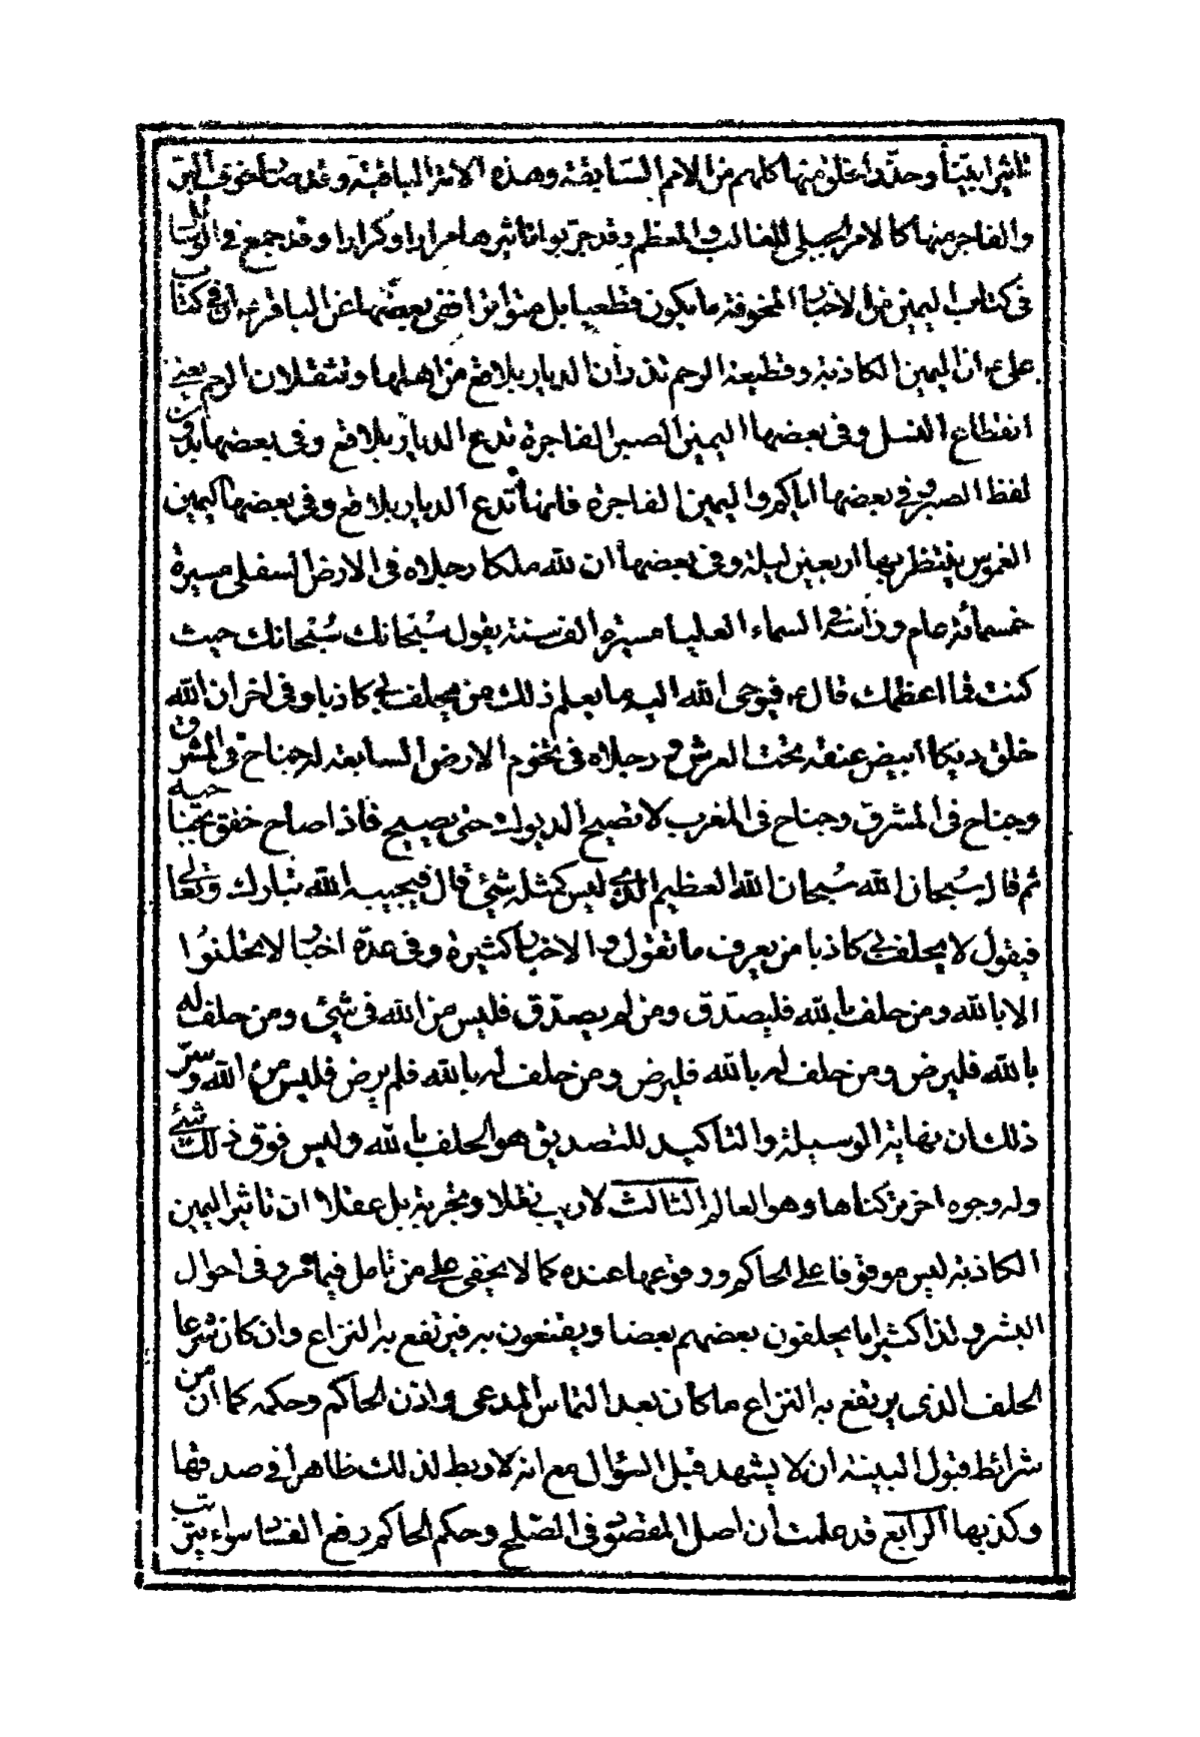 تاثيرا بيّنا وحذّر اغلق منها كلهم من الامم السّابقة وهذه الامّة الباقية وقد صار خوف البرّ
والفاجر منها كالامر الجبلي للغالب والمعظم وقد جرّبوا تاثيرها مرارا وكرارا وقد جمع في الوسائل
في كتاب اليمين من الاخبار المخوفة ما يكون قطعيا بل متواترا ففي بعضها عن الباقر ع ان في كتاب
علي ع ان اليمين الكاذبة وقطيعة الرحم تذران الديار بلاقع من اهلها وتثقلان الرحم يعني
انقطاع النسل وفي بعضها اليمين الصبر الفاجرة تدع الديار بلاقع وفي بعضها بدون
لفظ الصبر وفي بعضها اياكم واليمين الفاجرة فانها تدع الديار بلاقع وفي بعضها اليمين
الغموس ينتظر بها اربعين ليلة وفي بعضها ان لله ملكا رجلاه في الارض السفلى مسيرة
خمسمائة عام وراسه في السماء العليا مسيرة الف سنة يقول سبحانك سبحانك حيث
كنت فما اعظمك قال ع فيوحى الله اليه ما يعلم ذلك من يحلف بي كاذبا وفي اخر ان الله
خلق ديكا ابيض عنقه تحت العرش و رجلاه في تخوم الارض السابعة له جناح في المشرق
وجناح في المشرق وجناح في المغرب لا تصيح الديوك حتى يصيح فاذا صاح خفق بجناحيه
ثم قال سبحان الله سبحان الله العظيم الذي ليس كمثله شئ قال فيجيبه الله تبارك وتعالى
فيقول لا يحلف بي كاذبا من يعرف ما تقول و الاخبار كثيرة وفي عدّة اخبار لا تحلفوا
الا بالله ومن حلف بالله فليصدّق ومن لم يصدّق فليس من الله في شئ ومن حلف له
بالله فليرض ومن حلف له بالله فليرض ومن حلف له بالله فلم يرض فليس من الله وسرّ
ذلك ان نهاية الوسيلة والتاكيد للتصديق هو الحلف بالله وليس فوق ذلك شئ
وله وجوه اخر تركناها وهو العالم الثالث لا ريب نقلا وتجربة بل عقلا ان تاثير اليمين
الكاذبة ليس موقوفا على الحاكم ووقوعها عنده كما لا يخفى على من تامل فيما مر و في احوال
البشر و لذا كثيرا ما يحلفون بعضهم بعضا ويقنعون به فيرتفع به النزاع وان كان شرعا
الحلف الذي يرتفع به النزاع ما كان بعد التماس المدعي واذن الحاكم وحكمه كما ان من
شرائط قبول البينة ان لا يشهد قبل السؤال مع انه لا ربط لذلك ظاهرا في صدقها
وكذبها الرابع قد علمت ان اصل المقصود في الصلح وحكم الحاكم رفع الفساد سواء يترتب